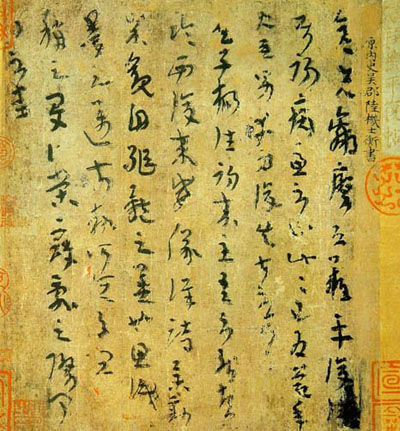 原內史吳郡陸機士衡書
彥先羸瘵恐難平復往屬
初病慮不止此此已為慶承使
唯男幸為復失前憂耳
子楊往初來主吾不能盡
臨西復來威儀詳跱舉動
成觀自軀體之美也思識
量之邁前執所恒有宜
稱之夏伯榮寇亂之際聞
問不悉